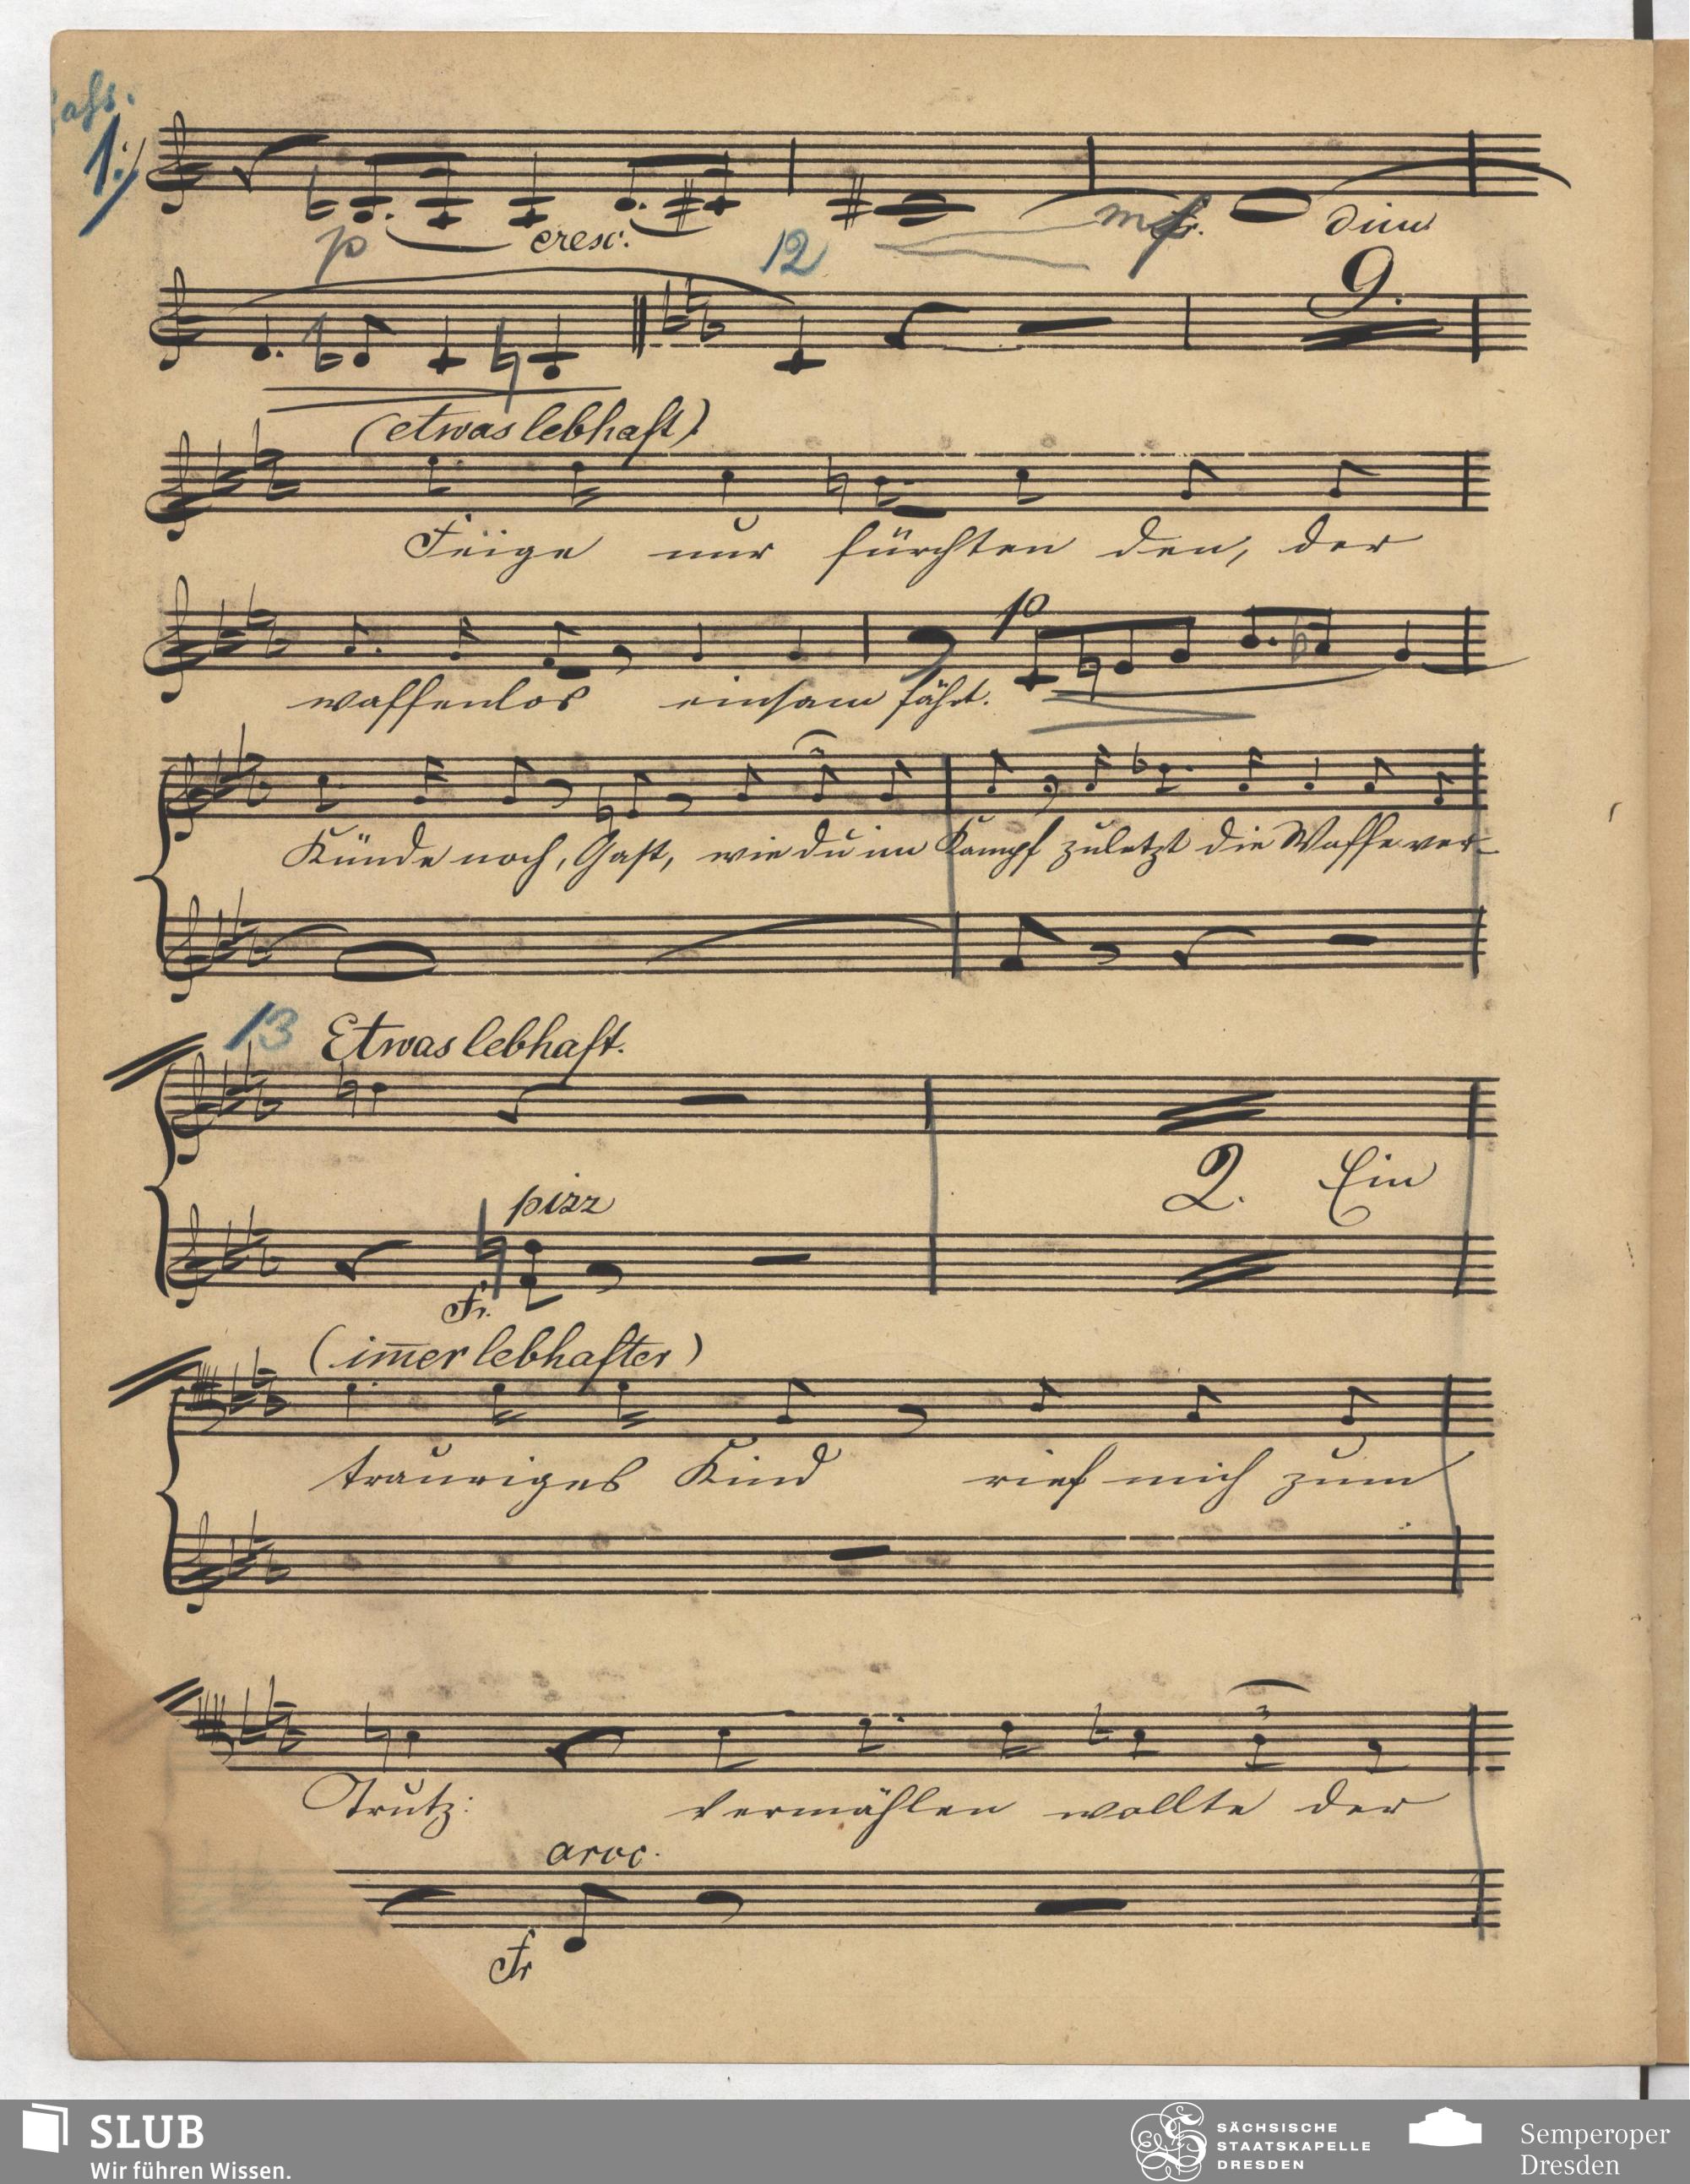 1.)
p cresc. 12 mf dim
9.
(etwas lebhaft)
Feige nur fürchten den, der
waffenlos einsam fährt.
p
Künde noch, Gast, wie du im Kampf zuletzt die Waffe ver-
13 Etwas lebhaft.
2. Ein
pizz
f
(im̅er lebhafter)
trauriges Kind rief mich zum
3
Trutz: vermählen wollte der
arco.
f
SLUB
Wir führen Wissen.
SÄCHSISCHE
STAATSKAPELLE
DRESDEN
Semperoper
Dresden